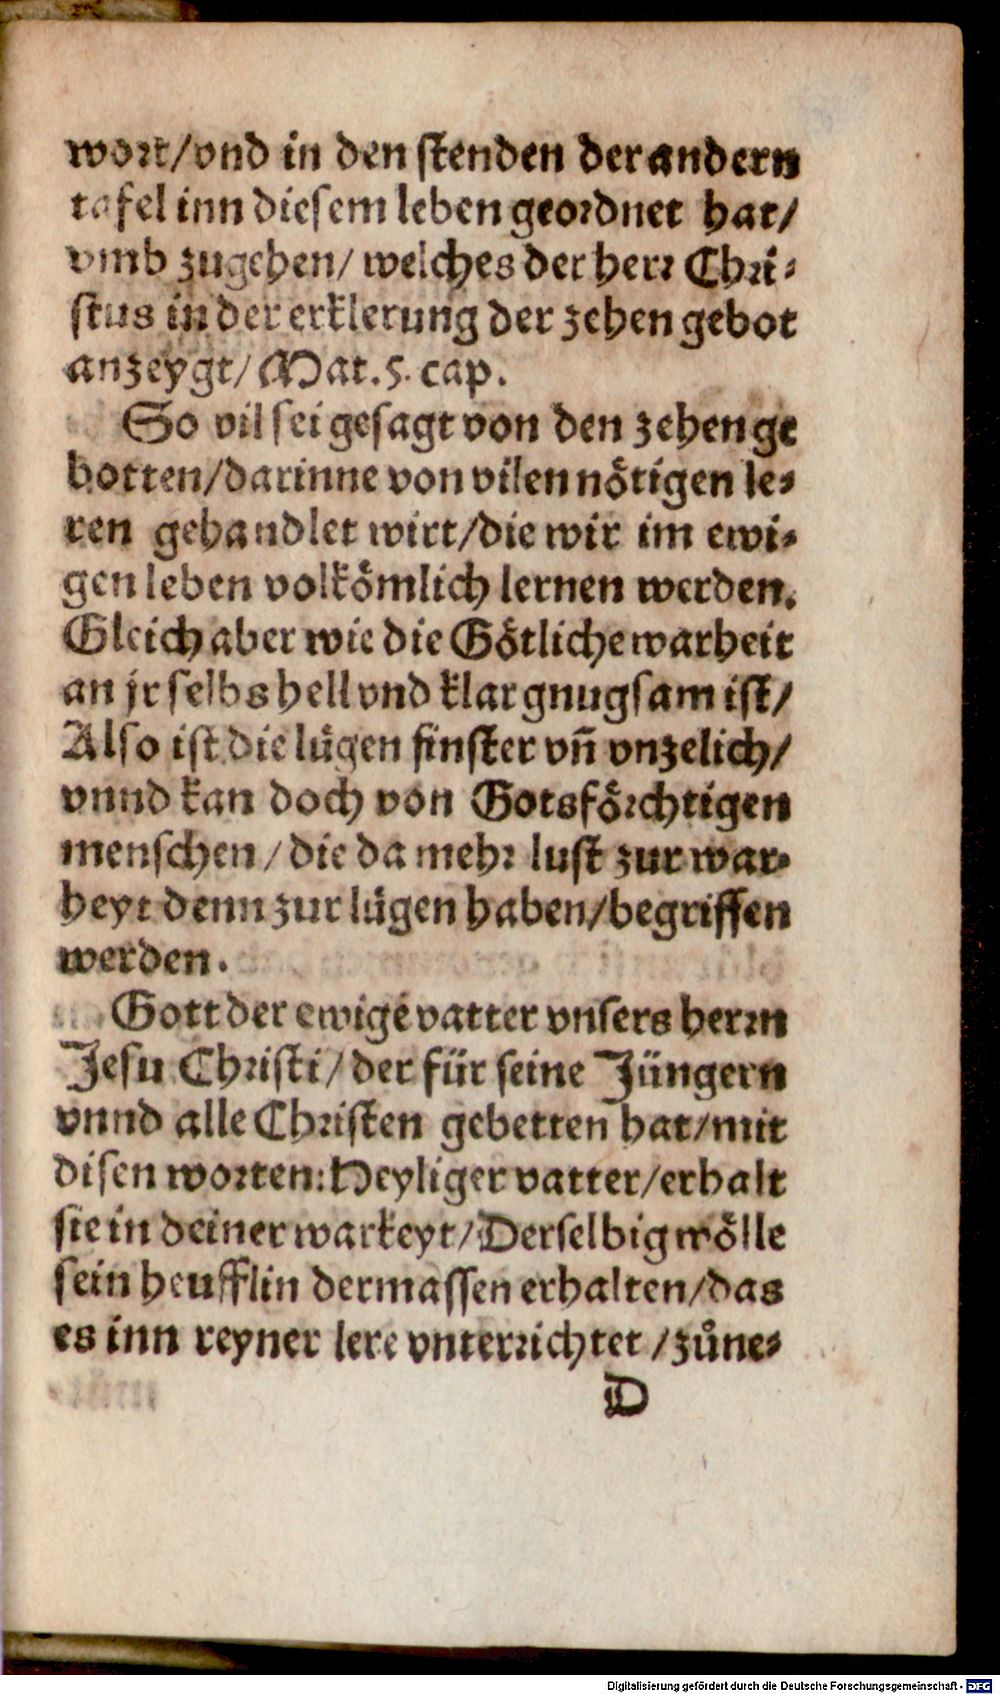 wort/vnd in den stenden der andern
tafel inn diesem leben geordnet hat/
vmb zugehen/ welches der herr Chri-
stus in der erklerung der zehen gebot
anzeygt/ Mat. 5. cap.
So vil sei gesagt von den zehen ge
botten/darinne von vilen nötigen le-
ren gehandlet wirt/die wir im ewi-
gen leben volkömlich lernen werden.
Gleich aber wie die Götliche warheit
an jr selbs hell vnd klar gnugsam ist/
Also ist die lügen finster vñ vnzelich/
vnnd kan doch von Gotsförchtigen
menschen/die da mehr lust zur war-
heyt denn zur lügen haben/begriffen
werden.
Gott der ewige vatter vnsers herrn
Jesu Christi/der für seine Jüngern
vnnd alle Christen gebetten hat/mit
disen worten: Heyliger vatter/erhalt
sie in deiner warkeyt/Derselbig wölle
sein heufflin dermassen erhalten/das
es inn reyner lere vnterrichtet/zůne-
D
Digitalisierung gefördert durch die Deutsche Forschungsgemeinschaft - DFG